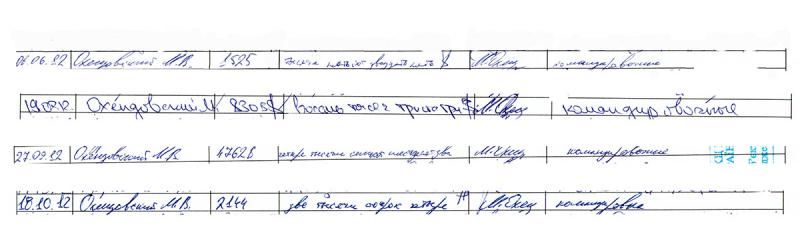 06.06.12 Охендовский М.В. 1525 тысяча пятьсот двадцать пять $ командировочные
19 Охендовский М 8305$ восемь тысяч триста командировочные
27.09.12 Охендовский М.В. 4762$ четыре тысячи семьсот шестьдесят два командировочные
18.10.12 Охендовский М.В. 2144 две тысячи сорок четыре командировка